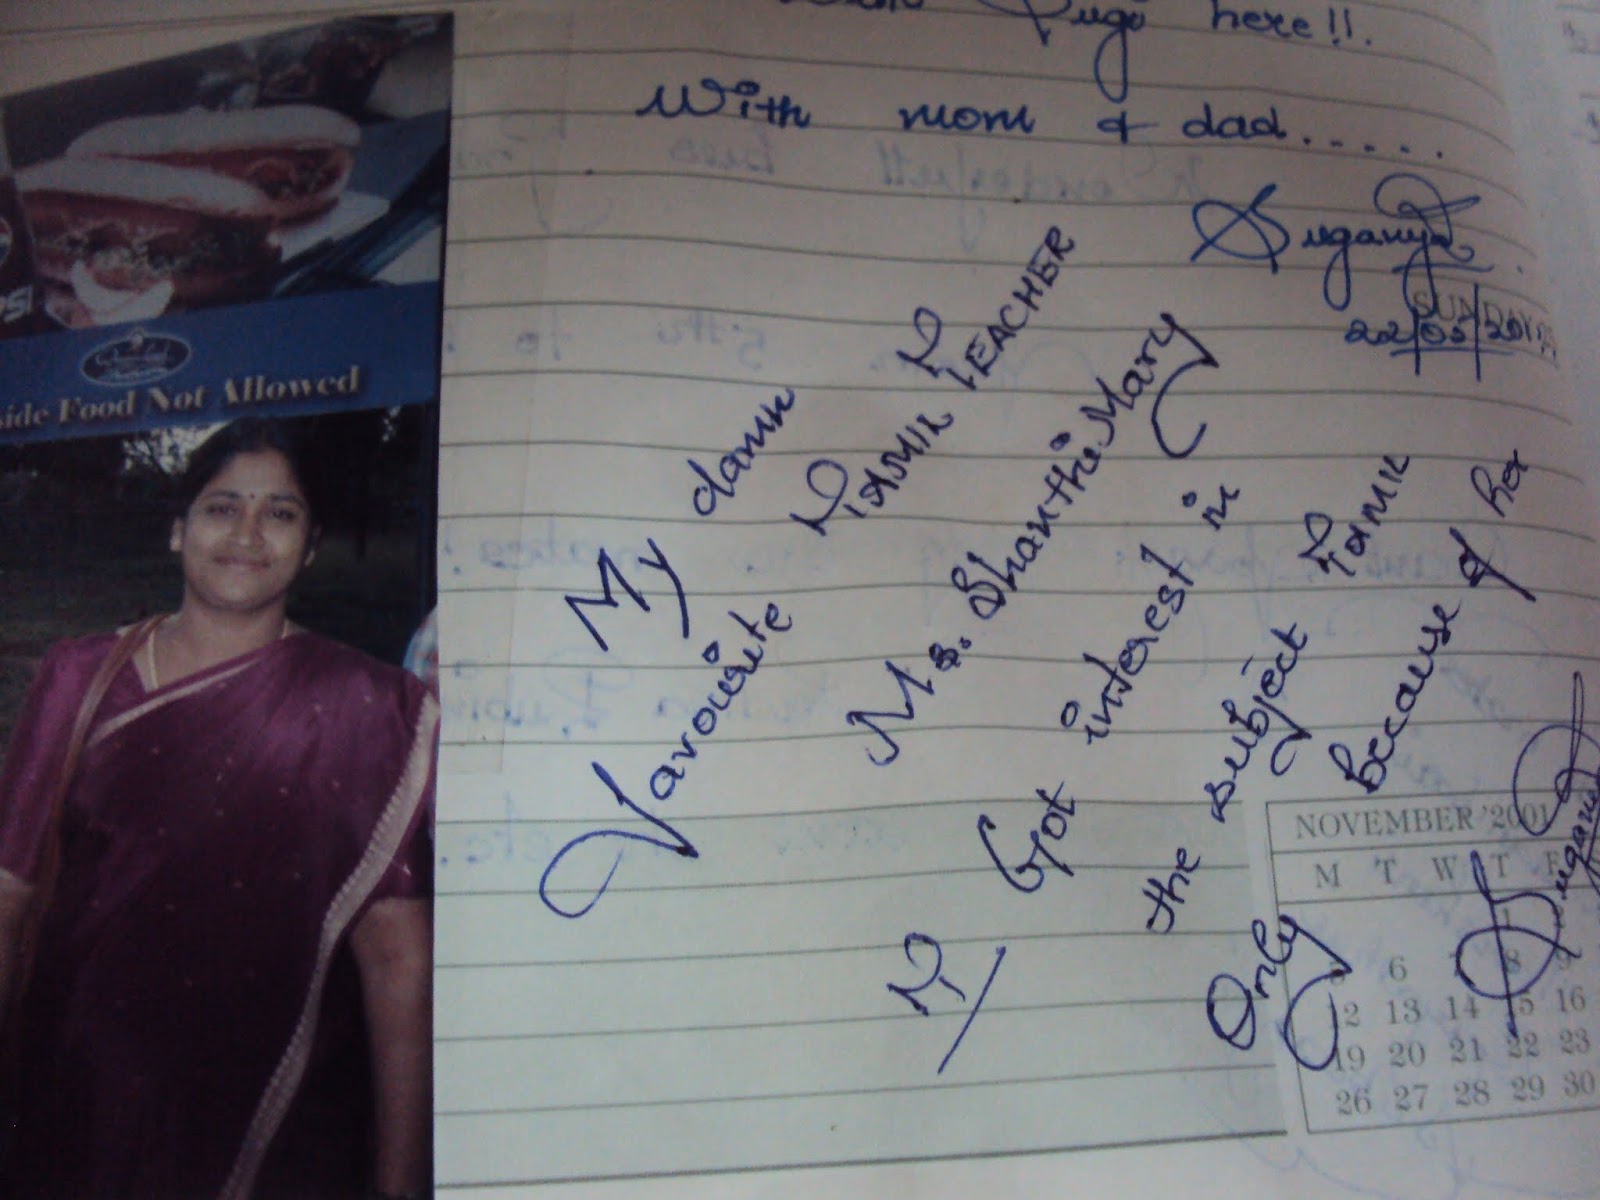 here!!.
With mom & dad.....
Suganya
SUNDAY
side Food Not Allowed
My
Favourite TAMIL TEACHER
Ms. Shanthi Mary
I Got interest in
the subject Tamil
Only because of her
Suganya
NOVEMBER '2001
M T W T F
1
5 6 7 8 9
12 13 14 15 16
19 20 21 22 23
26 27 28 29 30